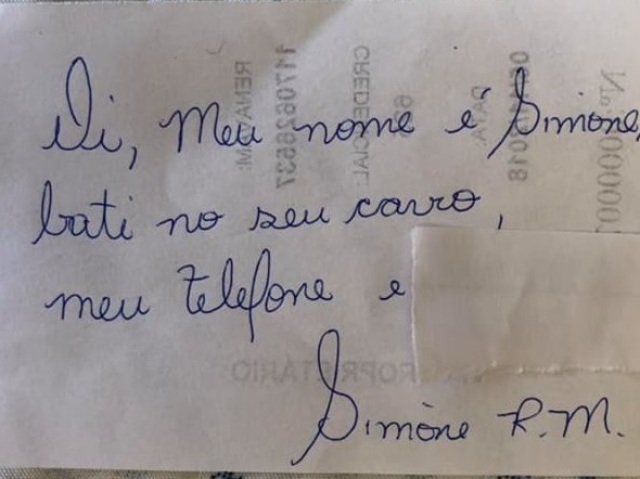 Oi, Meu nome é Simone,
bati no seu carro,
meu telefone e
Simone R.M.
RENAVAM:
1170626537
CREDENCIAL:
DATA:
PROPRIETÁRIO